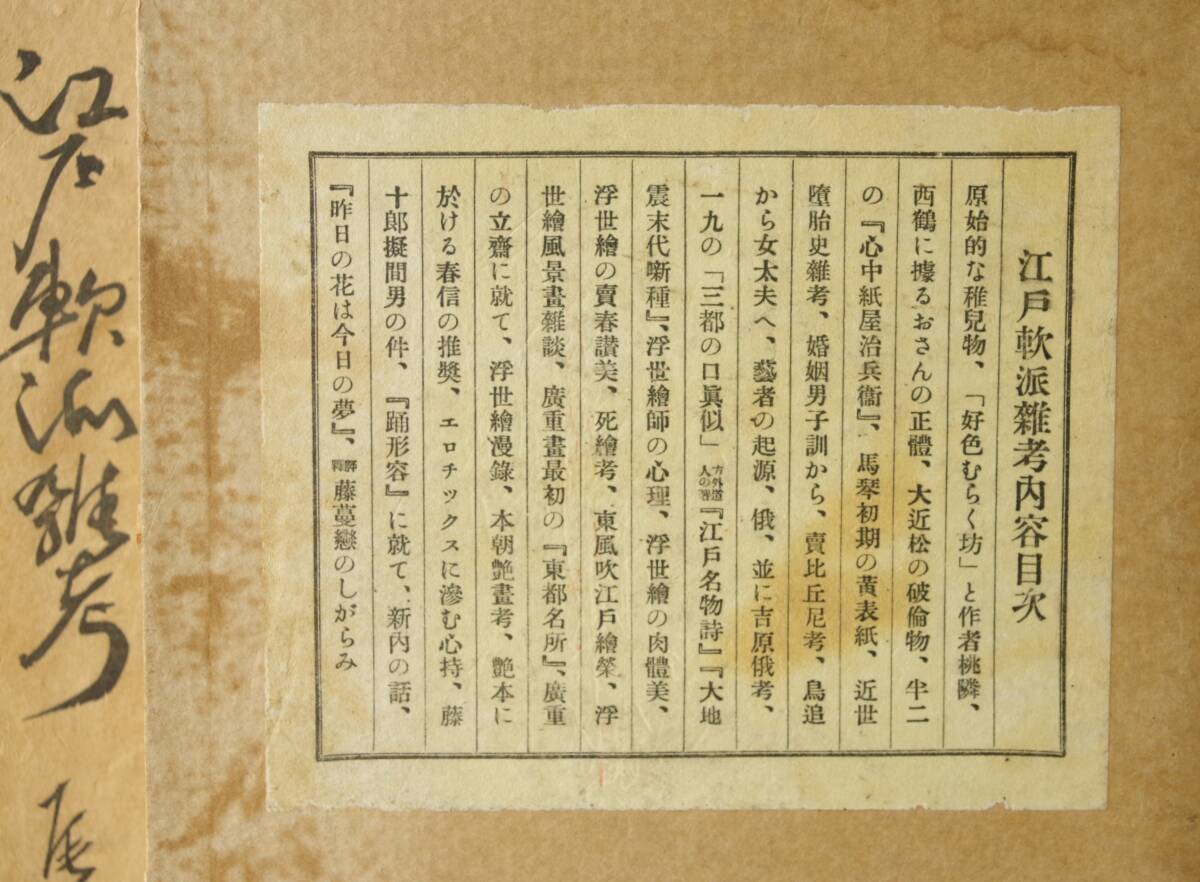 江戶軟派雜考內容目次
原始的な稚兒物、「好色むらく坊」と作者桃隣、
西鶴に據るおさんの正體、大近松の破倫物、半二
の『心中紙屋治兵衞』、馬琴初期の黃表紙、近世
墮胎史雜考、婚姻男子訓から、賣比丘尼考、鳥追
から女太夫へ、藝者の起源、俄、並に吉原俄考、
一九の「三都の口眞似」方外道人の著『江戶名物詩』『大地
震末代噺種』、浮世繪師の心理、浮世繪の肉體美、
浮世繪の賣春讃美、死繪考、東風吹江戶繪榮、浮
世繪風景畫雜談、廣重畫最初の『東都名所』、廣重
の立齋に就て、浮世繪漫錄、本朝艶畫考、艶本に
於ける春信の推奬、エロチックスに滲む心持、藤
十郞擬間男の件、『踊形容』に就て、新內の話、
『昨日の花は今日の夢』、藤蔓戀のしがらみ
江戸軟派雑考